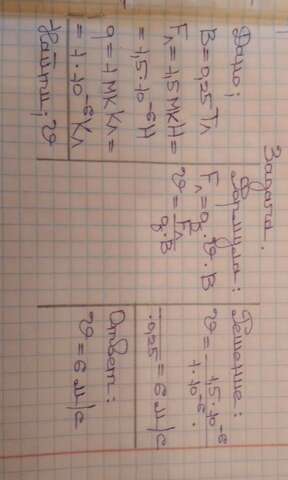 Задача.
Дано:
B = 0,25 Тл
Fл = 1,5 мкН =
= 1,5 · 10⁻⁶ Н
q = 1 мкКл =
= 1 · 10⁻⁶ Кл
Найти: υ
Формула:
Fл = q · υ · B
υ = Fл / q · B
Решение:
υ = 1,5 · 10⁻⁶ / 1 · 10⁻⁶ ·
· 0,25 = 6 м/с
Ответ:
υ = 6 м/с